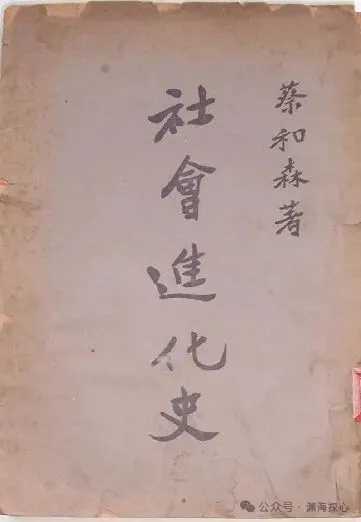 蔡和森著
社會進化史
公众号 · 渊海探心